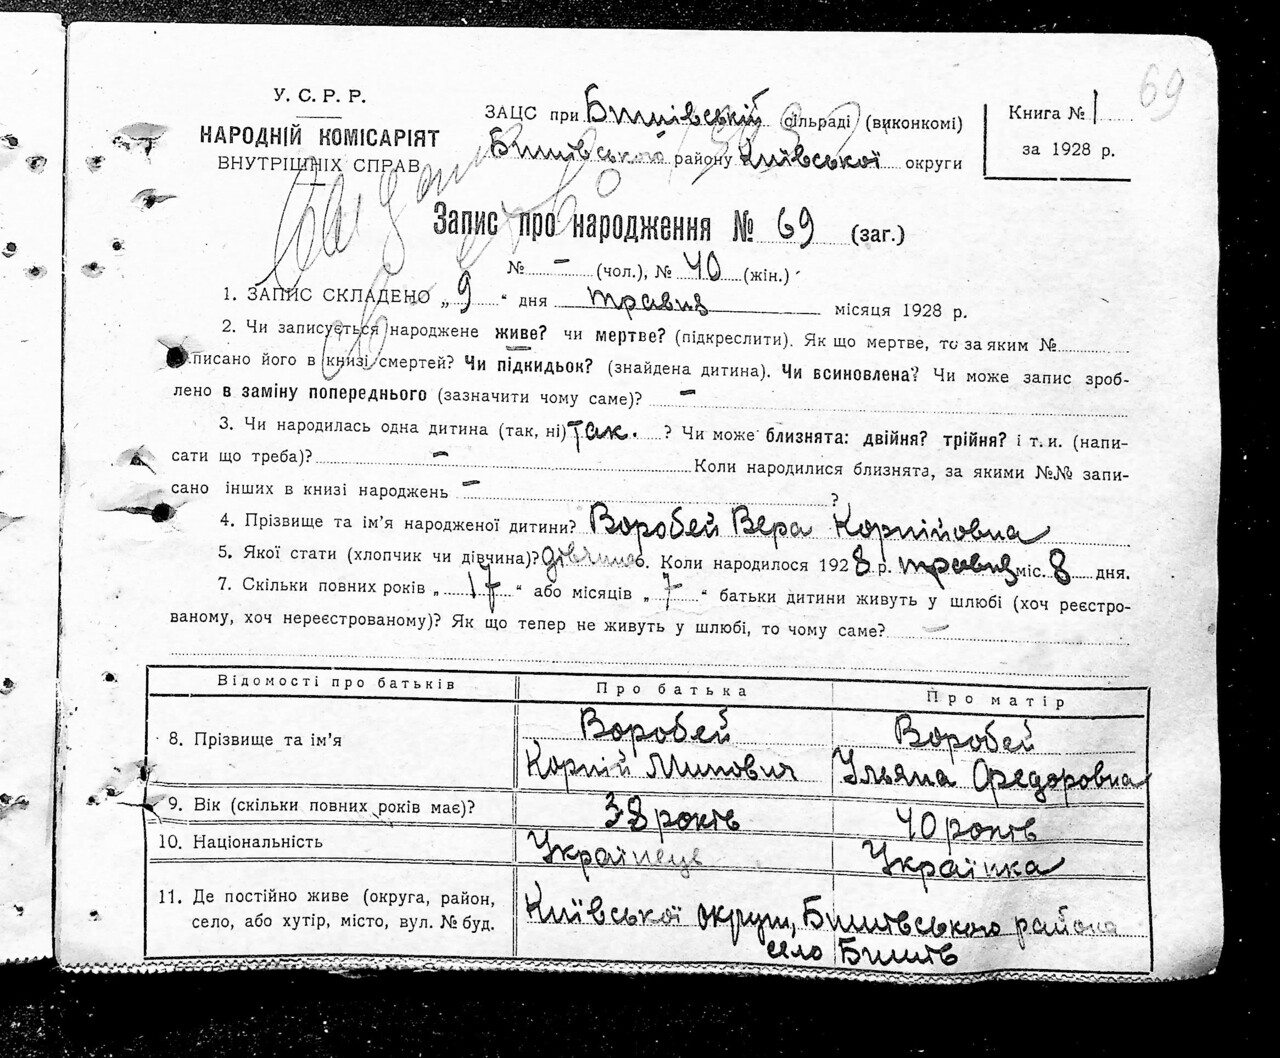 69
У. С. Р. Р.
НАРОДНІЙ КОМІСАРІЯТ
ВНУТРІШНІХ СПРАВ
ЗАЦС при Бишівській сільраді (виконкомі)
Бишівського району Київської округи
Книга № 1
за 1928 р.
Запис про народження № 69 (заг.)
№ – (чол.), № 40 (жін.)
1. ЗАПИС СКЛАДЕНО „ 9 “ дня травня місяця 1928 р.
2. Чи записується народжене живе? чи мертве? (підкреслити). Як що мертве, то за яким №
записано його в книзі смертей? Чи підкидьок? (знайдена дитина). Чи всиновлена? Чи може запис зроб-
лено в заміну попереднього (зазначити чому саме)? –
3. Чи народилась одна дитина (так, ні) так. ? Чи може близнята: двійня? трійня? і т. и. (напи-
сати що треба)? – Коли народилися близнята, за якими №№ запи-
сано інших в книзі народжень – ?
4. Прізвище та ім’я народженої дитини? Воробей Вера Корнійовна
5. Якої стати (хлопчик чи дівчина)? дівчина 6. Коли народилося 1928 р. травня міс. 8 дня.
7. Скільки повних років „ 17 “ або місяців „ 7 “ батьки дитини живуть у шлюбі (хоч реєстро-
ваному, хоч нереєстрованому)? Як що тепер не живуть у шлюбі, то чому саме? –
Відомості про батьків Про батька Про матір
8. Прізвище та ім’я Воробей Воробей
Корній Минович Ульяна Федоровна
9. Вік (скільки повних років має)? 38 років 40 років
10. Національність Українець Українка
11. Де постійно живе (округа, район,
село, або хутір, місто, вул. № буд.
Київської округи, Бишівського района
село Бишів